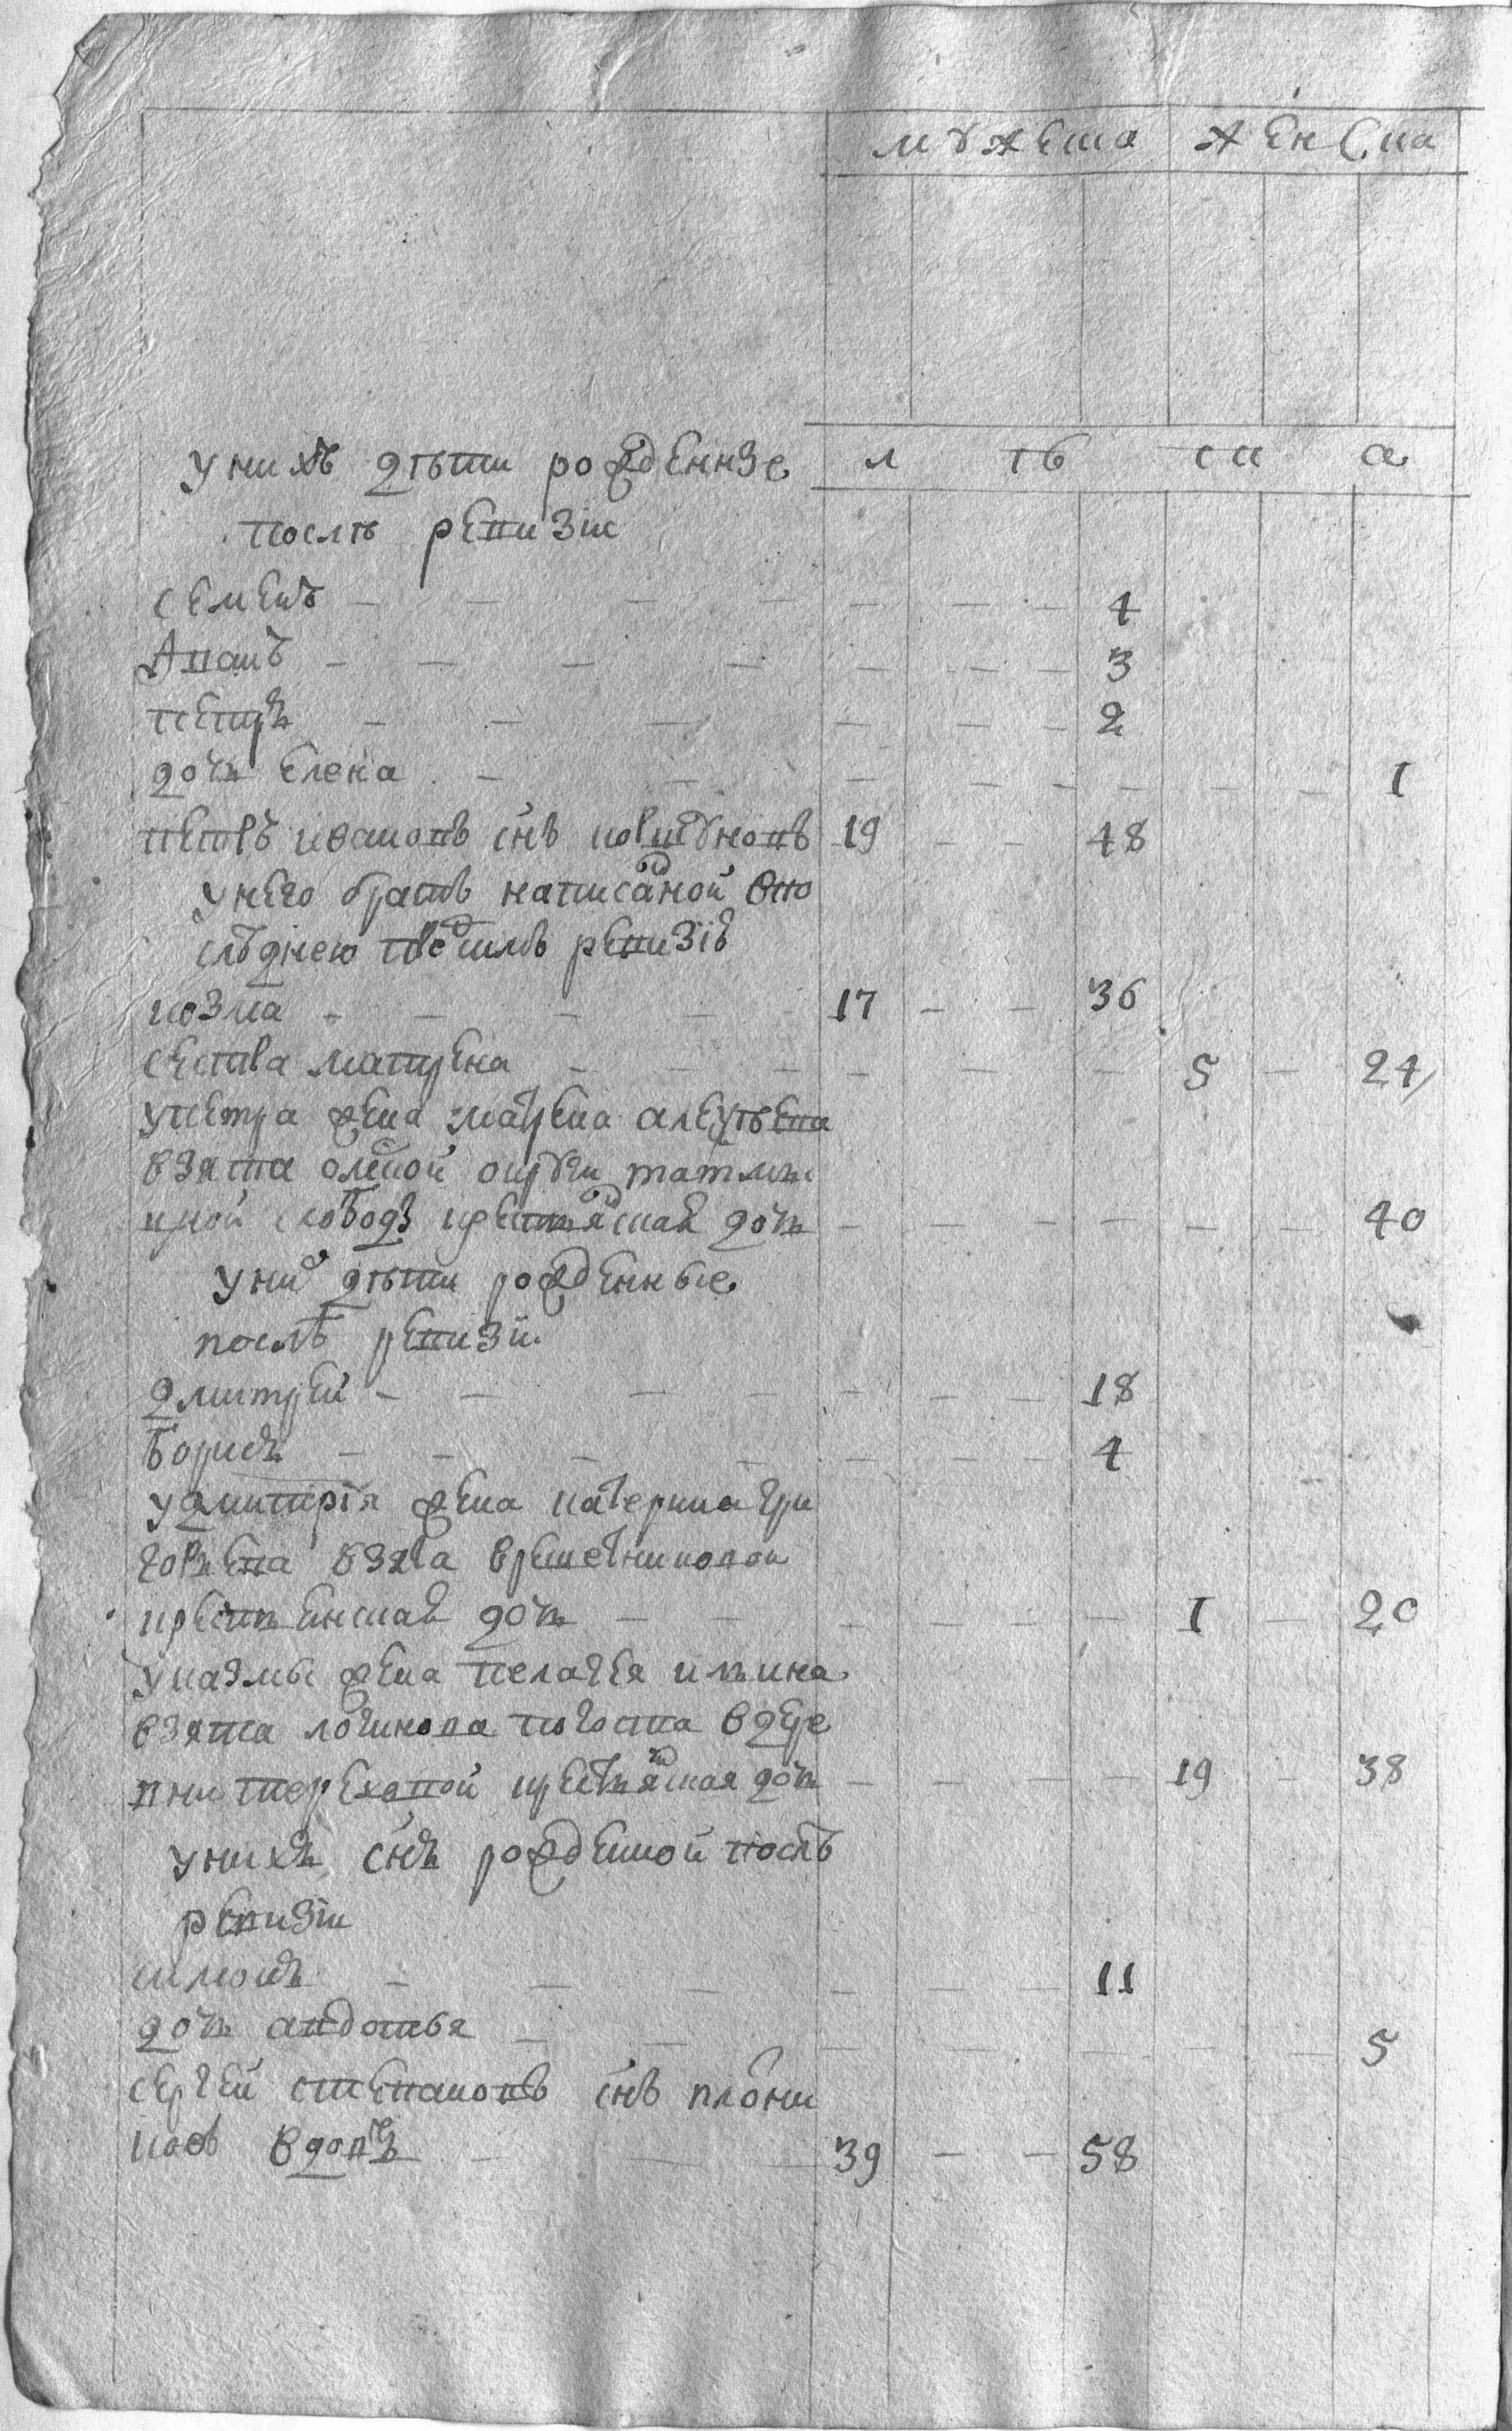 мужеска женска
у нихъ дѣти рожденные л ѣ та
послѣ ревизіи
семенъ — — — — 4
Иванъ — — — — 3
петръ — — — — 2
дочь елена — — — — 1
петръ ивановъ снъ 19 — — 48
у него братъ написанной в по
слѣднею предъ симъ ревизіѣ
козма — — — — 17 — — 36
сестра матрена — — — 5 — 24
у петра жена матрена алексѣева
взята олонской округи
слободѣ крестьянская дочь — — — 40
у них дѣти рожденные
послѣ ревизіи
дмитрей — — — — 18
борисъ — — — — 4
у дмитрія жена катерина гри
горьева взята в решетниковой
крестьянская дочь — — — 1 — 20
у казмы жена пелагея ильина
взята логинова погоста в дере
вни тереховой крестьянская дочь — — — 19 — 38
у нихъ снъ рожденной послѣ
ревизіи
симонъ — — — — 11
дочь авдотья — — — — 5
сергей степановъ снъ плотни
ковъ вдовъ — — — 39 — — 58